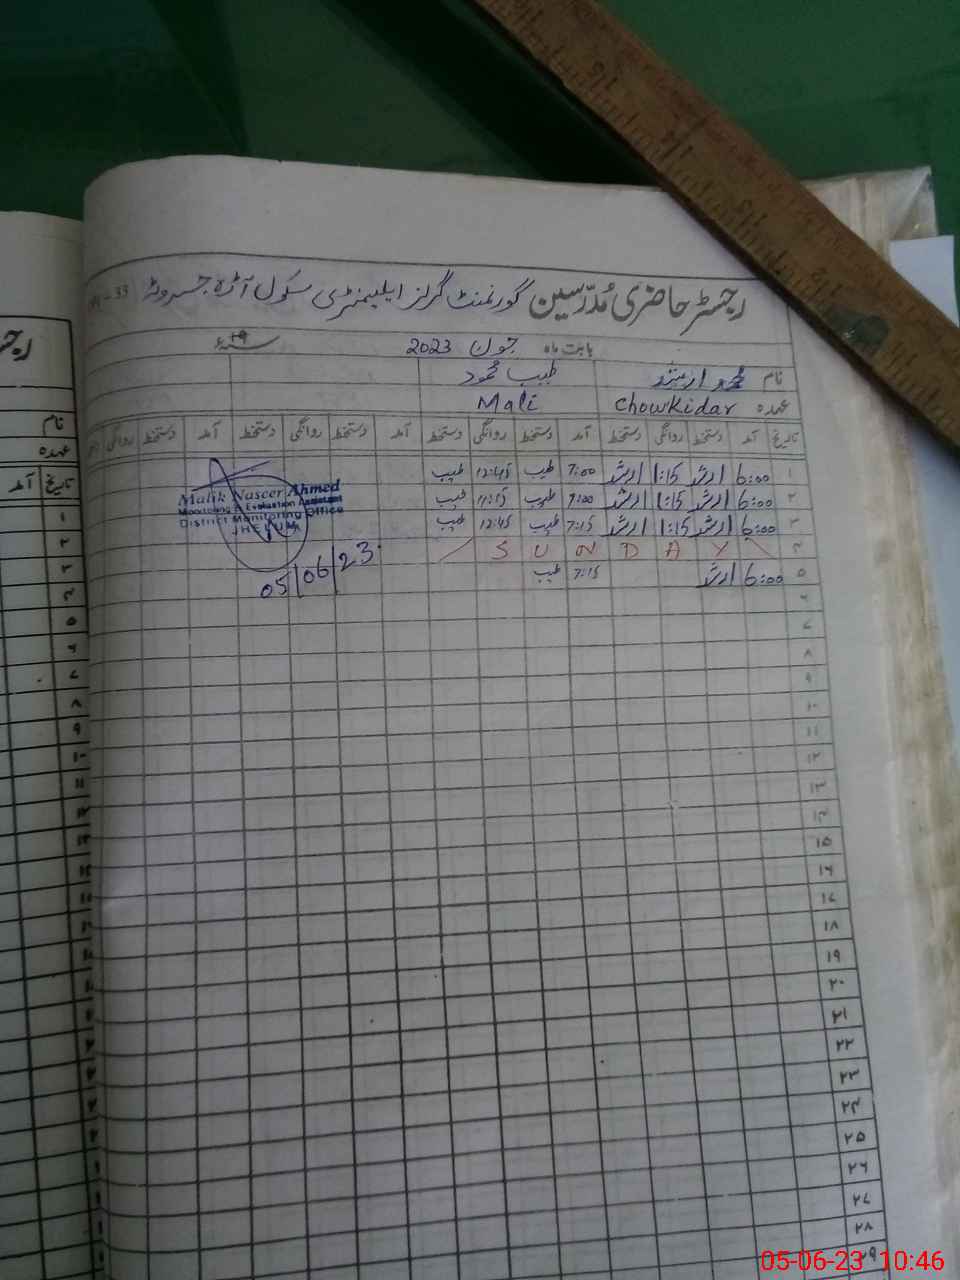 رجسٹر حاضری مدرسین گورنمنٹ گرلز ایلیمنٹری سکول آڑہ جسروٹہ
بابت ماہ جون 2023 ۱۹ سنہء
نام محمد ارشد طیب محمود
عہدہ Chowkidar Mali
تاریخ آمد دستخط روانگی دستخط آمد دستخط روانگی دستخط آمد دستخط روانگی دستخط آمد دستخط روانگی
۱ 6:00 ارشد 1:15 ارشد 7:00 طیب 12:45 طیب
۲ 6:00 ارشد 1:15 ارشد 7:00 طیب 11:15 طیب
۳ 6:00 ارشد 1:15 ارشد 7:15 طیب 12:45 طیب
۴ SUNDAY
۵ 6:00 ارشد 7:15 طیب
Malik Naseer Ahmed
Monitoring & Evaluation Assistant
District Monitoring Office
JHELUM
05/06/23
۶
۷
۸
۹
۱۰
۱۱
۱۲
۱۳
۱۴
۱۵
۱۶
۱۷
۱۸
۱۹
۲۰
۲۱
۲۲
۲۳
۲۴
۲۵
۲۶
۲۷
۲۸
۲۹
نام
عہدہ
تاریخ آمد
۱
۲
۳
۴
۵
۶
۷
۸
۹
۱۰
۱۱
05-06-23 10:46